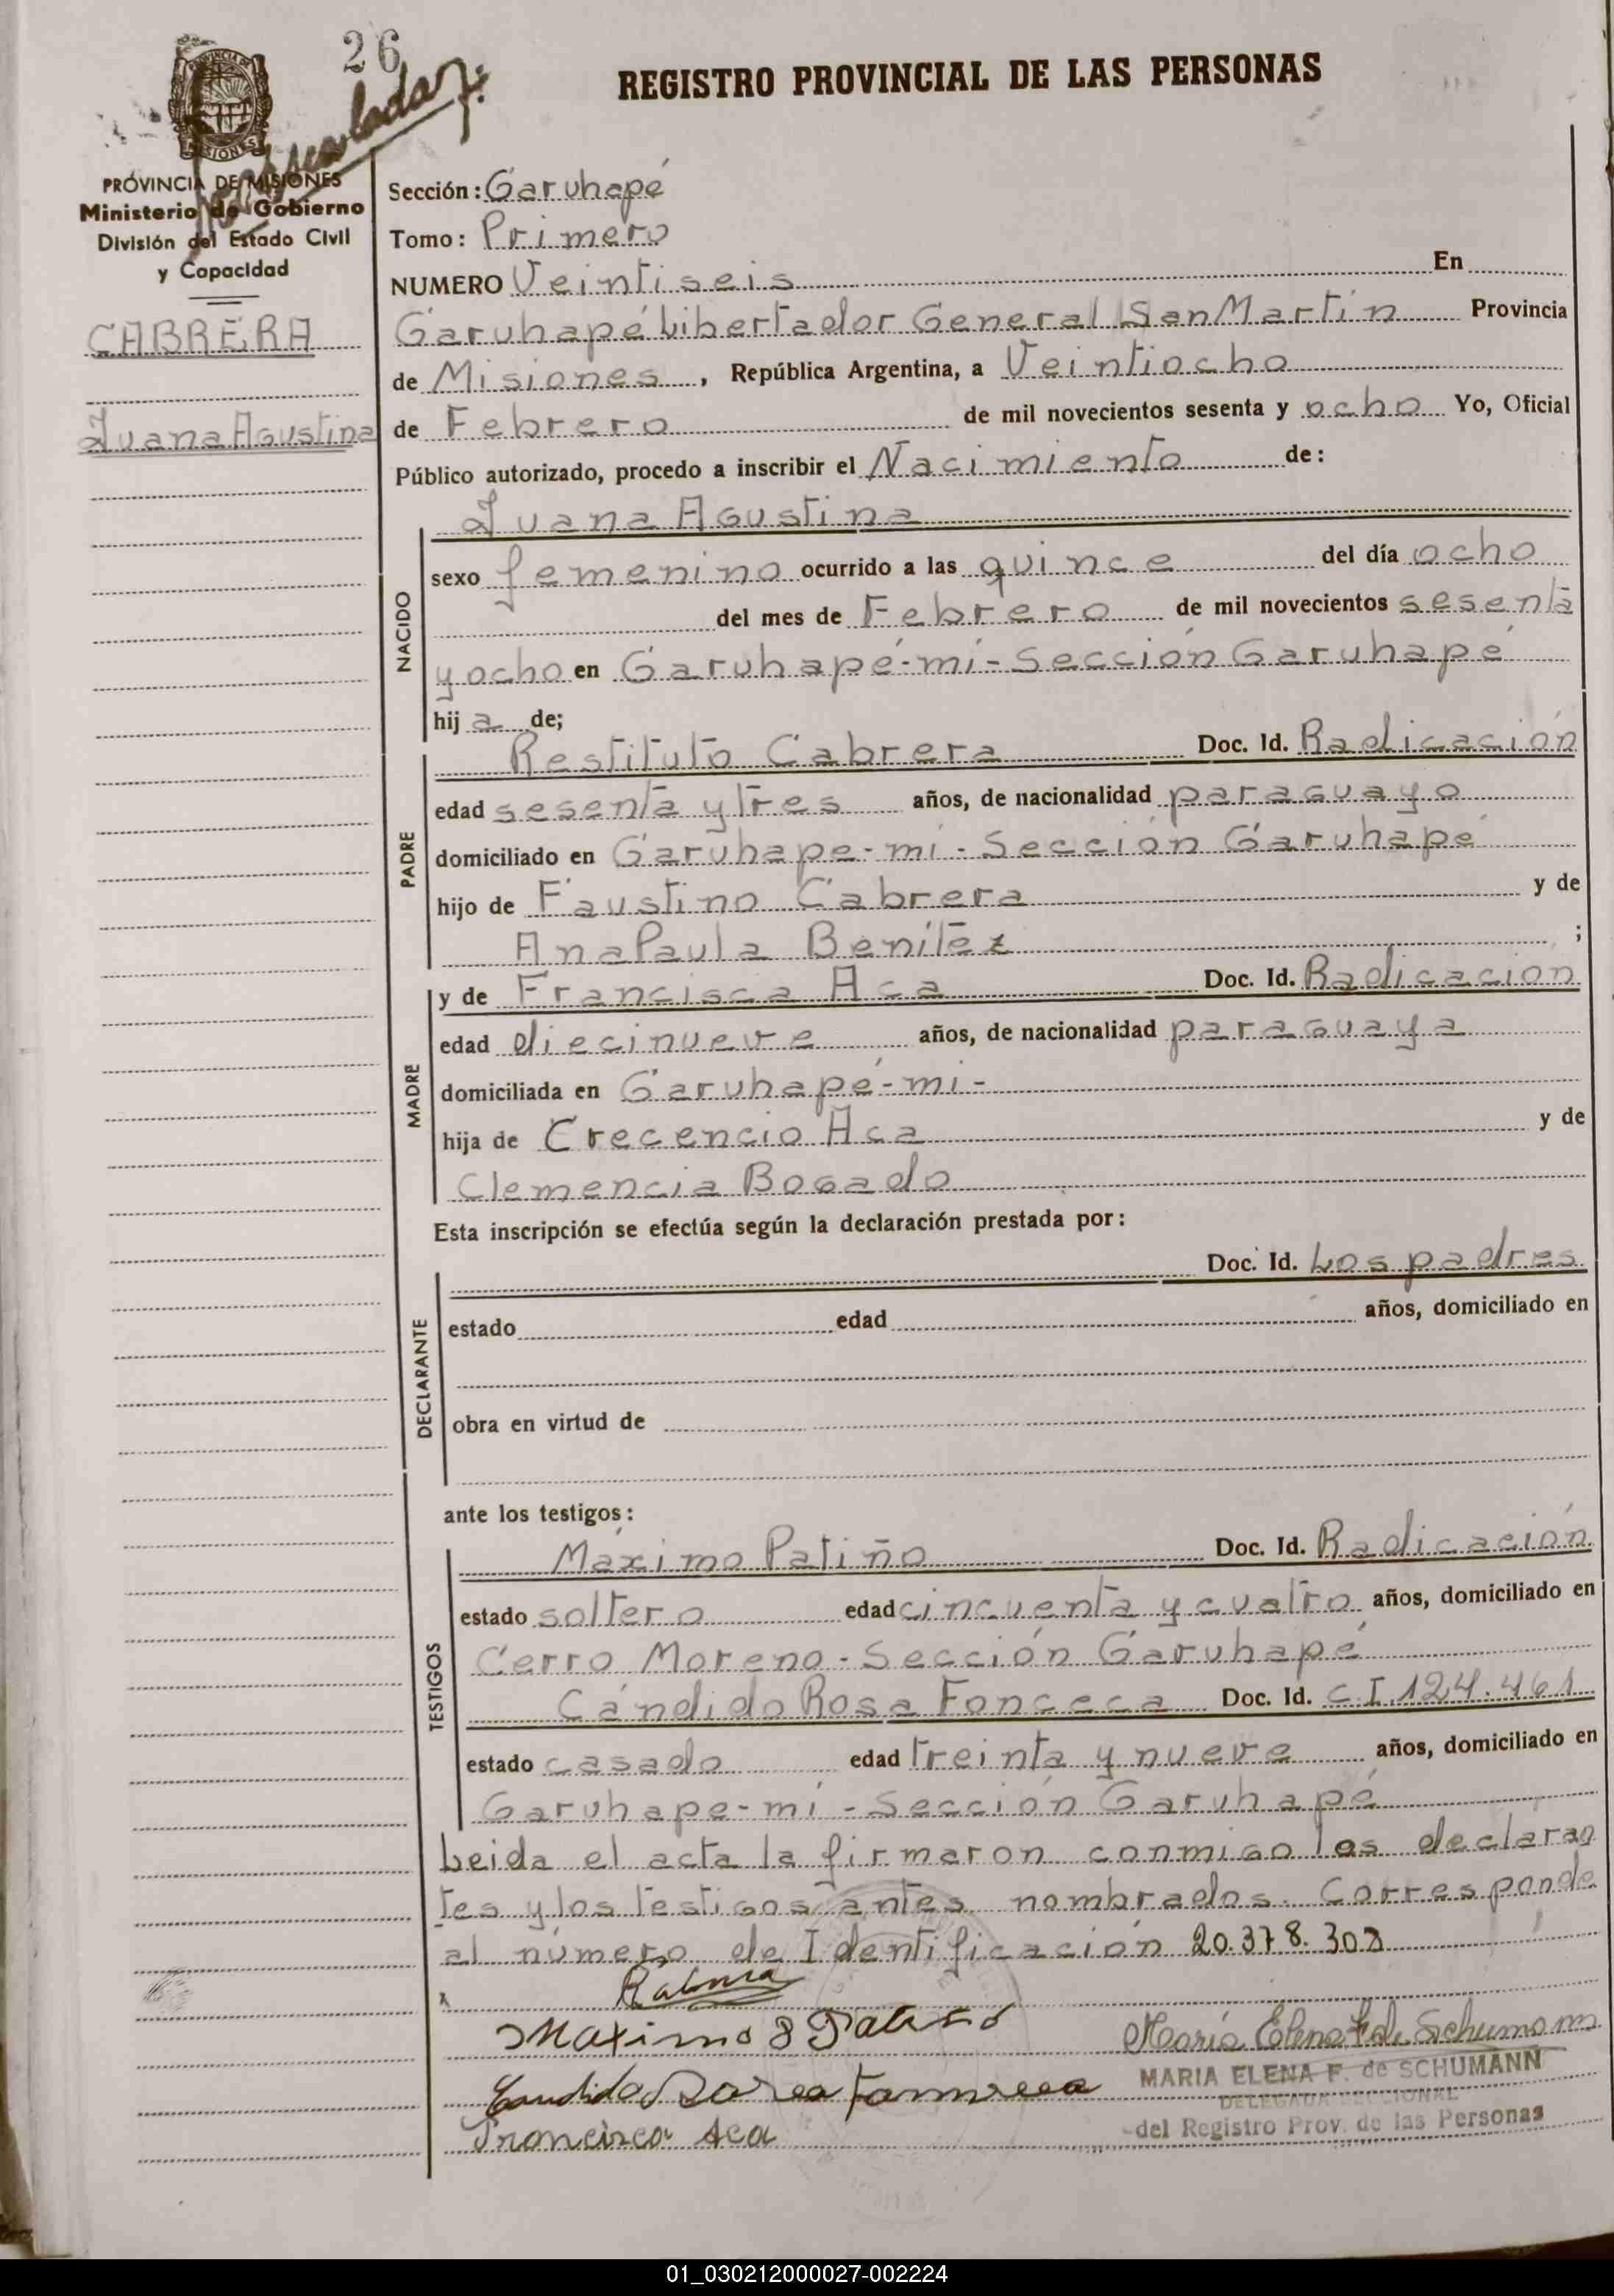 26
REGISTRO PROVINCIAL DE LAS PERSONAS
PROVINCIA DE MISIONES
Ministerio de Gobierno
División del Estado Civil
y Capacidad
CABRERA
Juana Agustina
Sección: Garuhapé
Tomo: Primero
NUMERO Veintiseis En
Garuhapé Libertador General San Martín Provincia
de Misiones, República Argentina, a Veintiocho
de Febrero de mil novecientos sesenta y ocho Yo, Oficial
Público autorizado, procedo a inscribir el Nacimiento de:
NACIDO
Juana Agustina
sexo femenino ocurrido a las quince del día ocho
del mes de Febrero de mil novecientos sesenta
y ocho en Garuhapé-mí-Sección Garuhapé
hij a de;
PADRE
Restituto Cabrera Doc. Id. Radicación
edad sesenta y tres años, de nacionalidad paraguayo
domiciliado en Garuhape-mí-Sección Garuhapé
hijo de Faustino Cabrera y de
Ana Paula Benítez ;
MADRE
y de Francisca Aca Doc. Id. Radicación
edad diecinueve años, de nacionalidad paraguaya
domiciliada en Garuhapé-mí-
hija de Crecencio Aca y de
Clemencia Bogado
Esta inscripción se efectúa según la declaración prestada por:
DECLARANTE
Doc. Id. Los padres
estado edad años, domiciliado en
obra en virtud de
ante los testigos:
TESTIGOS
Máximo Patiño Doc. Id. Radicación
estado soltero edad cincuenta y cuatro años, domiciliado en
Cerro Moreno-Sección Garuhapé
Cándido Rosa Fonceca Doc. Id. C.I.124.461
estado casado edad treinta y nueve años, domiciliado en
Garuhape-mí-Sección Garuhapé
Leida el acta la firmaron conmigo los declaran
tes y los testigos antes nombrados. Corresponde
al número de Identificación 20.378.303
Maximo Patiño
María Elena F. de Schumann
MARIA ELENA F. de SCHUMANN
DELEGADA SECCIONAL
del Registro Prov. de las Personas
Francisca Aca
01_030212000027-002224